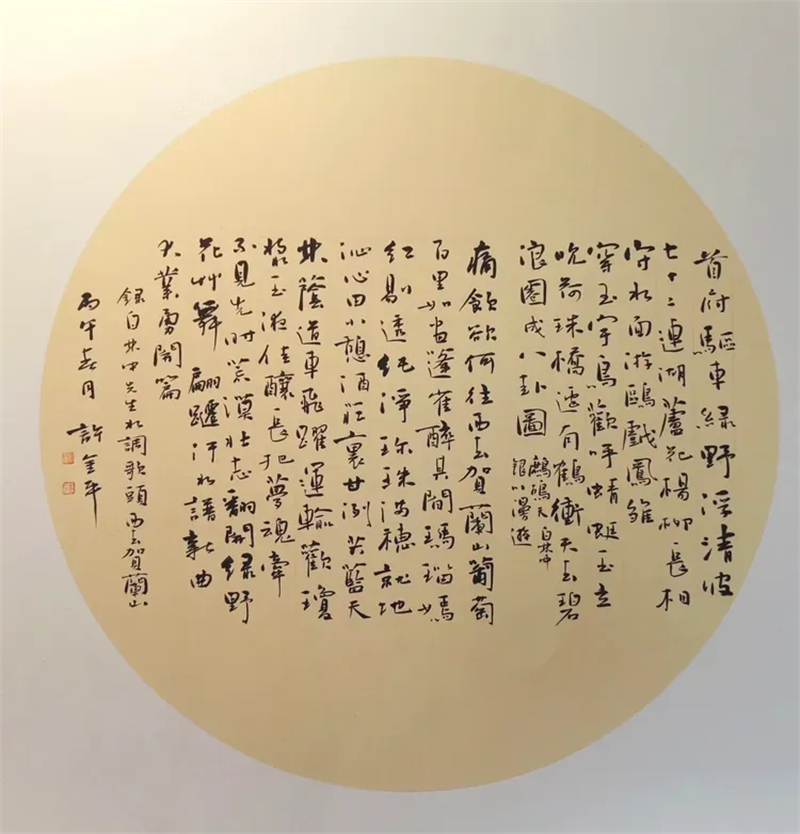 首府驅車綠野浮清波
七十二連湖蘆花楊柳長相
守水面游鷗戲鳳雛
穿玉宇鳥歡呼蜻蜓玉立
吮荷珠橋邊鶴衝天去碧
浪圈成八卦圖
鷓鴣天 白林中
銀川漫遊
痛飲欲何往西去賀蘭山葡萄
百里如畫逢雀醉其間瑪瑙嫣
紅剔透純淨珍珠滿穗就地
沁心田小憩酒莊裏甘洌笑藍天
林蔭道車飛躍運輸歡瓊
漿玉液佳釀長把夢魂牽
不見先時荒漠壯志翻開綠野
花艸舞翩躚汗水譜新曲
大業勇開篇
錄白林中先生水調歌頭西去賀蘭山
丙午春月 許金平